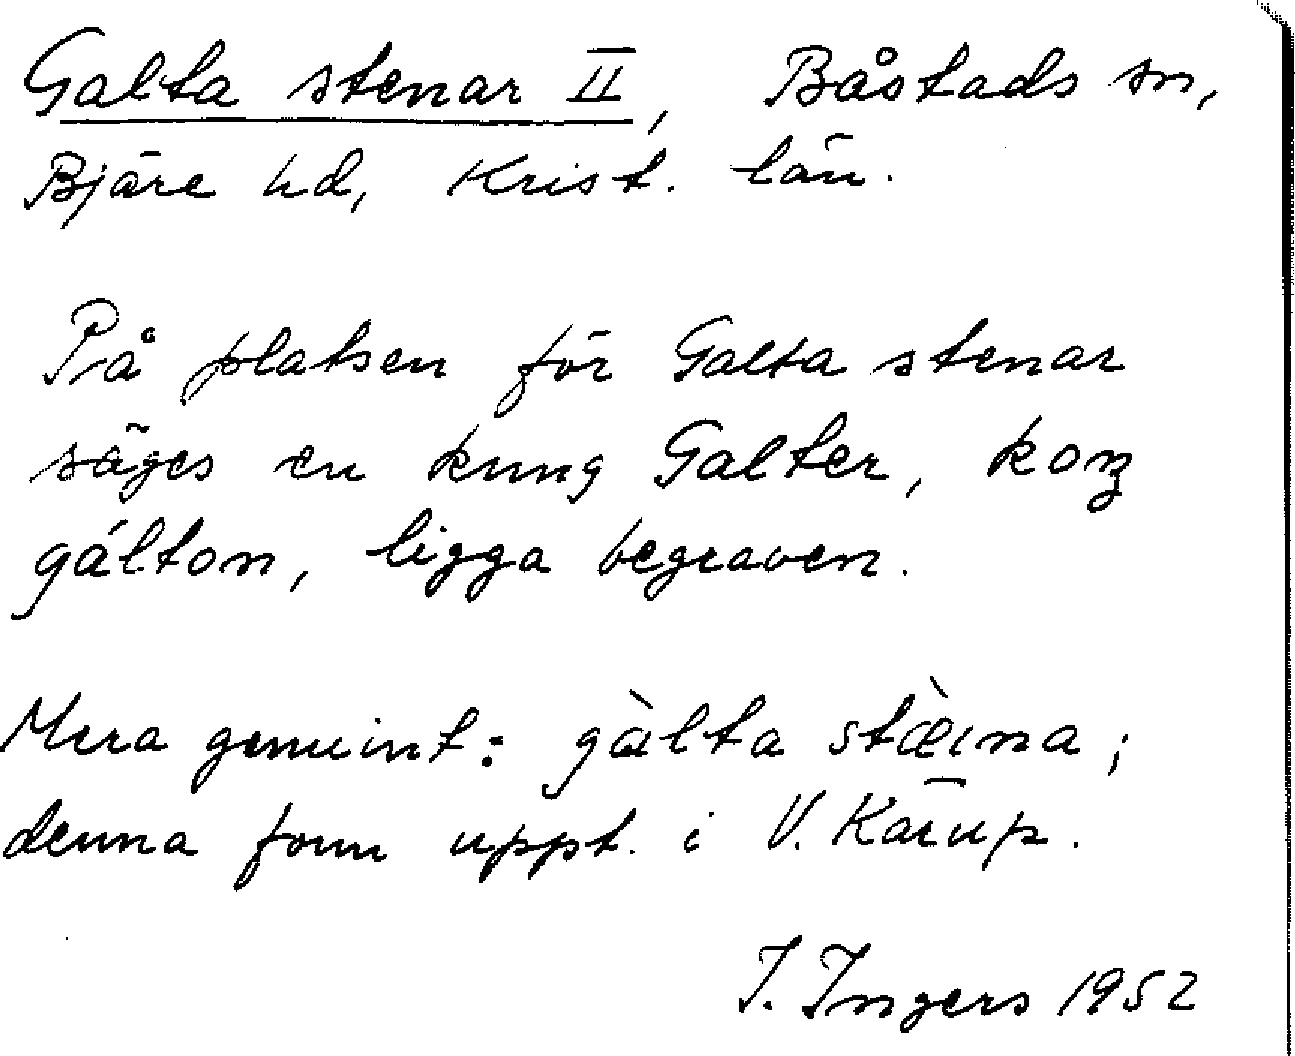 Galta stenar II, Båstads sn,
Bjäre hd, Krist. län.
På platsen för Galta stenar
säges en kung Galter, koŋ
gálton, ligga begraven.
Mera genuint: gàlta stæ̀ına;
denna form uppt. i V. Karup.
I. Ingers 1952